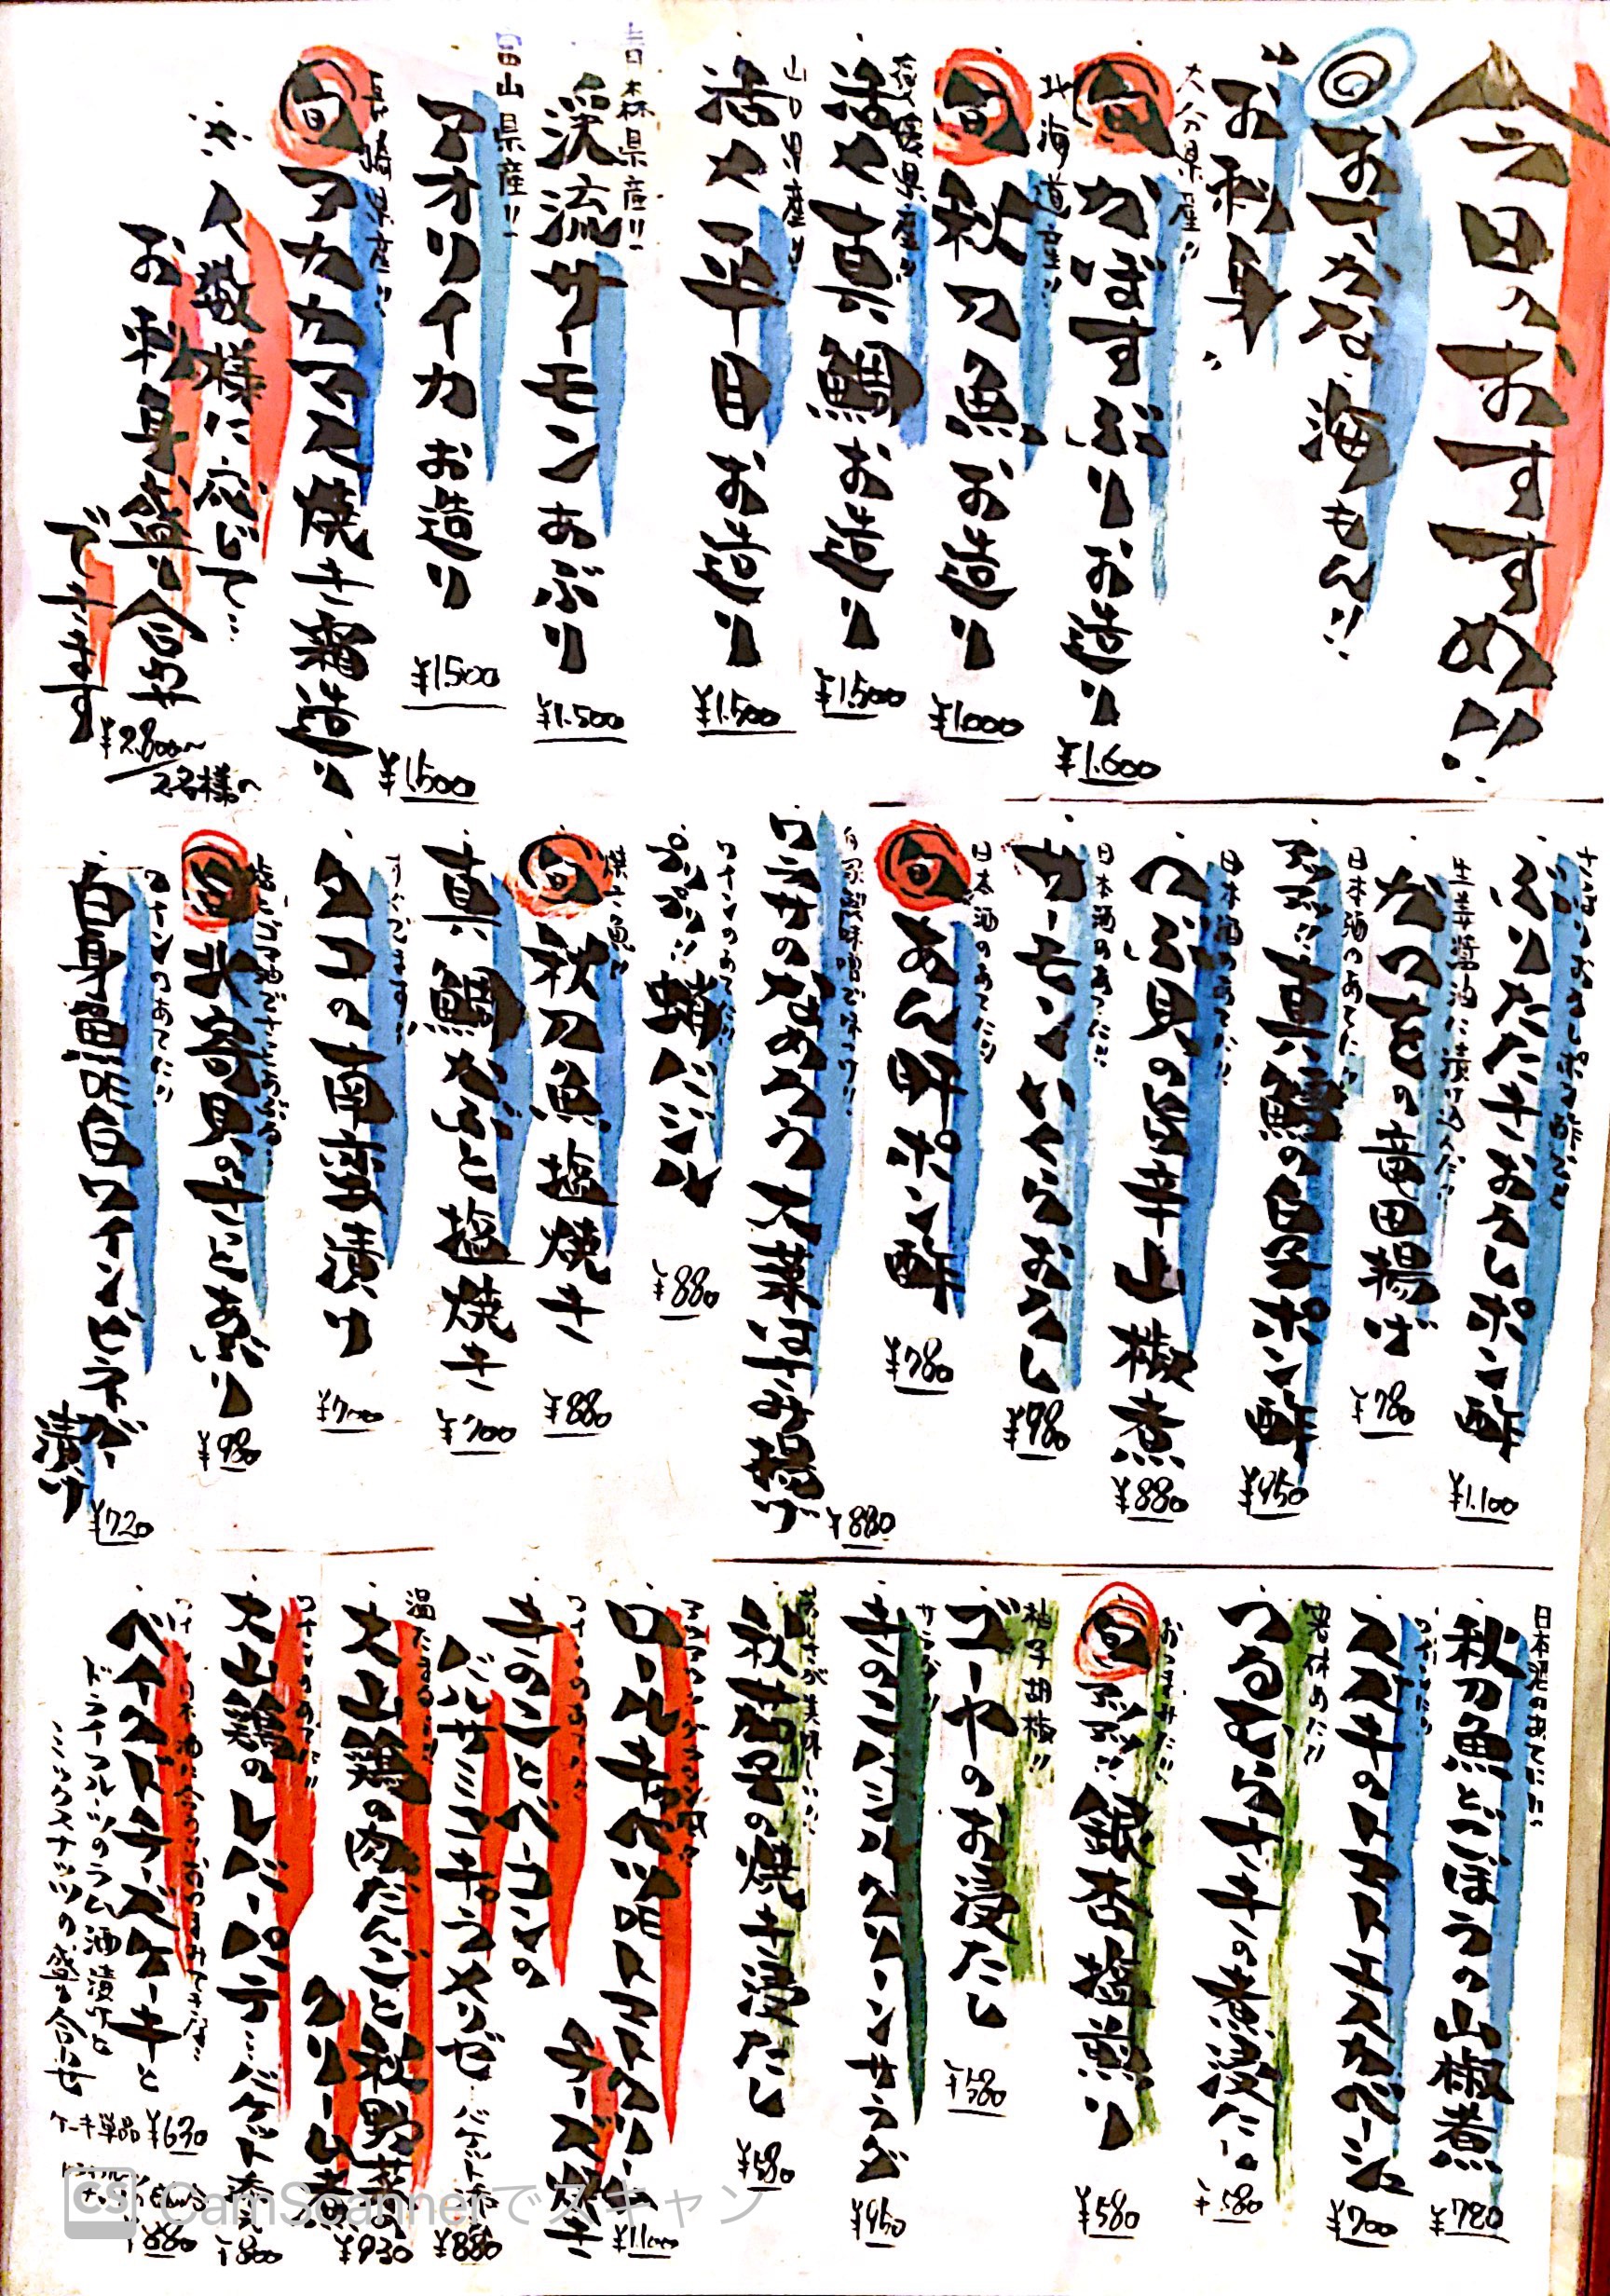 今日のおすすめ!!
おすすめ 海もん!!
"お刺身"
大分県産!!
かぼすぶりお造り
¥1.600
北海道産!!
旬 秋刀魚お造り
¥1.000
愛媛県産!!
活〆真鯛お造り
¥1.500
山口県産!!
活〆平目お造り
¥1.500
青森県産!!
渓流サーモンあぶり
¥1.500
富山県産!!
アオリイカお造り
¥1.500
長崎県産!!
旬 アカカマス焼き霜造り
¥1.500
※人数様に応じて…
お刺身盛り合わせ
できます
¥2.800〜
2名様〜
ぶりたたきおろしポン酢
¥1.100
生姜醤油に漬け込んだ!!
かつをの竜田揚げ
¥780
日本酒のあてに!!
真鱈の白子ポン酢
¥950
日本酒のあてに!!
つぶ貝の旨辛山椒煮
¥880
日本酒のあてに!!
サーモンいくらおろし
¥980
日本酒のあてに!!
旬 あん肝ポン酢
¥780
自家製味噌で味つけ!!
ワラサのなめろう大葉はさみ揚げ
¥880
ワインのあてに!!
¥880
焼き魚!!
旬 秋刀魚塩焼き
¥880
真鯛かぶと塩焼き
¥700
すぐでます!!
タコの南蛮漬け
¥700
旬 北寄貝のさっとあぶり
¥980
ワインのあてに!!
白身魚の白ワインビネガー漬け
¥720
日本酒のあてに!!
秋刀魚とごぼうの山椒煮
¥720
ススキのトマトエスカベーシュ
¥700
箸休めに!!
つるむらさきの煮浸し
¥580
おつまみに!!
旬 銀杏塩煎り
¥580
柚子胡椒!!
ゴーヤのお浸し
¥580
サラダ!!
きのことベーコンサラダ
¥950
秋茄子の焼き浸し
¥580
ロールキャベツのトマトクリームチーズ焼き
¥1.100
きのことベーコンの
バルサミコポテサラ…バケット添え
¥880
温たまのせ!!
大山鶏の肉だんごと秋野菜のクリーム煮
¥930
ワインのあてに!!
大山鶏のレバーパテ…バケット添え
¥800
ベイクドチーズケーキと
ドライフルーツのラム酒漬けと
ミックスナッツの盛り合わせ
ケーキ単品 ¥630
¥880
CS CamScannerでスキャン